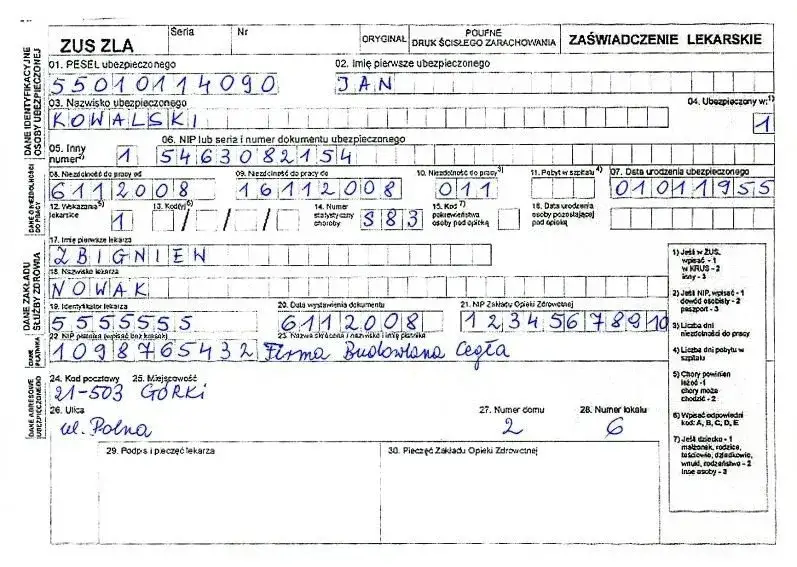 ZUS ZLA
Seria
Nr
ORYGINAŁ
POUFNE
DRUK ŚCISŁEGO ZARACHOWANIA
ZAŚWIADCZENIE LEKARSKIE
DANE IDENTYFIKACYJNE OSOBY UBEZPIECZONEJ
01. PESEL ubezpieczonego
55010114090
02. Imię pierwsze ubezpieczonego
JAN
03. Nazwisko ubezpieczonego
KOWALSKI
04. Ubezpieczony w:1)
1
05. Inny numer2)
1
06. NIP lub seria i numer dokumentu ubezpieczonego
5463082154
DANE O NIEZDOLNOŚCI DO PRACY
08. Niezdolność do pracy od
6112008
09. Niezdolność do pracy do
16112008
10. Niezdolność do pracy3)
011
11. Pobyt w szpitalu 4)
07. Data urodzenia ubezpieczonego
01011955
12. Wskazania5) lekarskie
1
13. Kod(y)6)
/ / /
14. Numer statystyczny choroby
S83
15. Kod 7) pokrewieństwa osoby pod opieką
16. Data urodzenia osoby pozostającej pod opieką
DANE ZAKŁADU SŁUŻBY ZDROWIA
17. Imię pierwsze lekarza
ZBIGNIEW
18. Nazwisko lekarza
NOWAK
19. Identyfikator lekarza
5555555
20. Data wystawienia dokumentu
6112008
21. NIP Zakładu Opieki Zdrowotnej
12345678910
DANE PŁATNIKA
22. NIP płatnika (wpisać bez kresek)
1098765432
23. Nazwa skrócona / nazwisko i imię płatnika
Firma Budowlana Cegła
DANE ADRESOWE UBEZPIECZONEGO
24. Kod pocztowy
25. Miejscowość
21-503 GÓRKI
26. Ulica
27. Numer domu
28. Numer lokalu
ul. Polna
2
6
29. Podpis i pieczęć lekarza
30. Pieczęć Zakładu Opieki Zdrowotnej
1) Jeśli w ZUS,
wpisać - 1
w KRUS - 2
inny - 3
2) Jeśli NIP, wpisać - 1
dowód osobisty - 2
paszport - 3
3) Liczba dni
niezdolności do pracy
4) Liczba dni pobytu w
szpitalu
5) Chory powinien
leżeć -1
chory może
chodzić - 2
6) Wpisać odpowiedni
kod: A, B, C, D, E
7) Jeśli dziecko - 1
małżonek, rodzice,
teściowie, dziadkowie,
wnuki, rodzeństwo - 2
inne osoby - 3